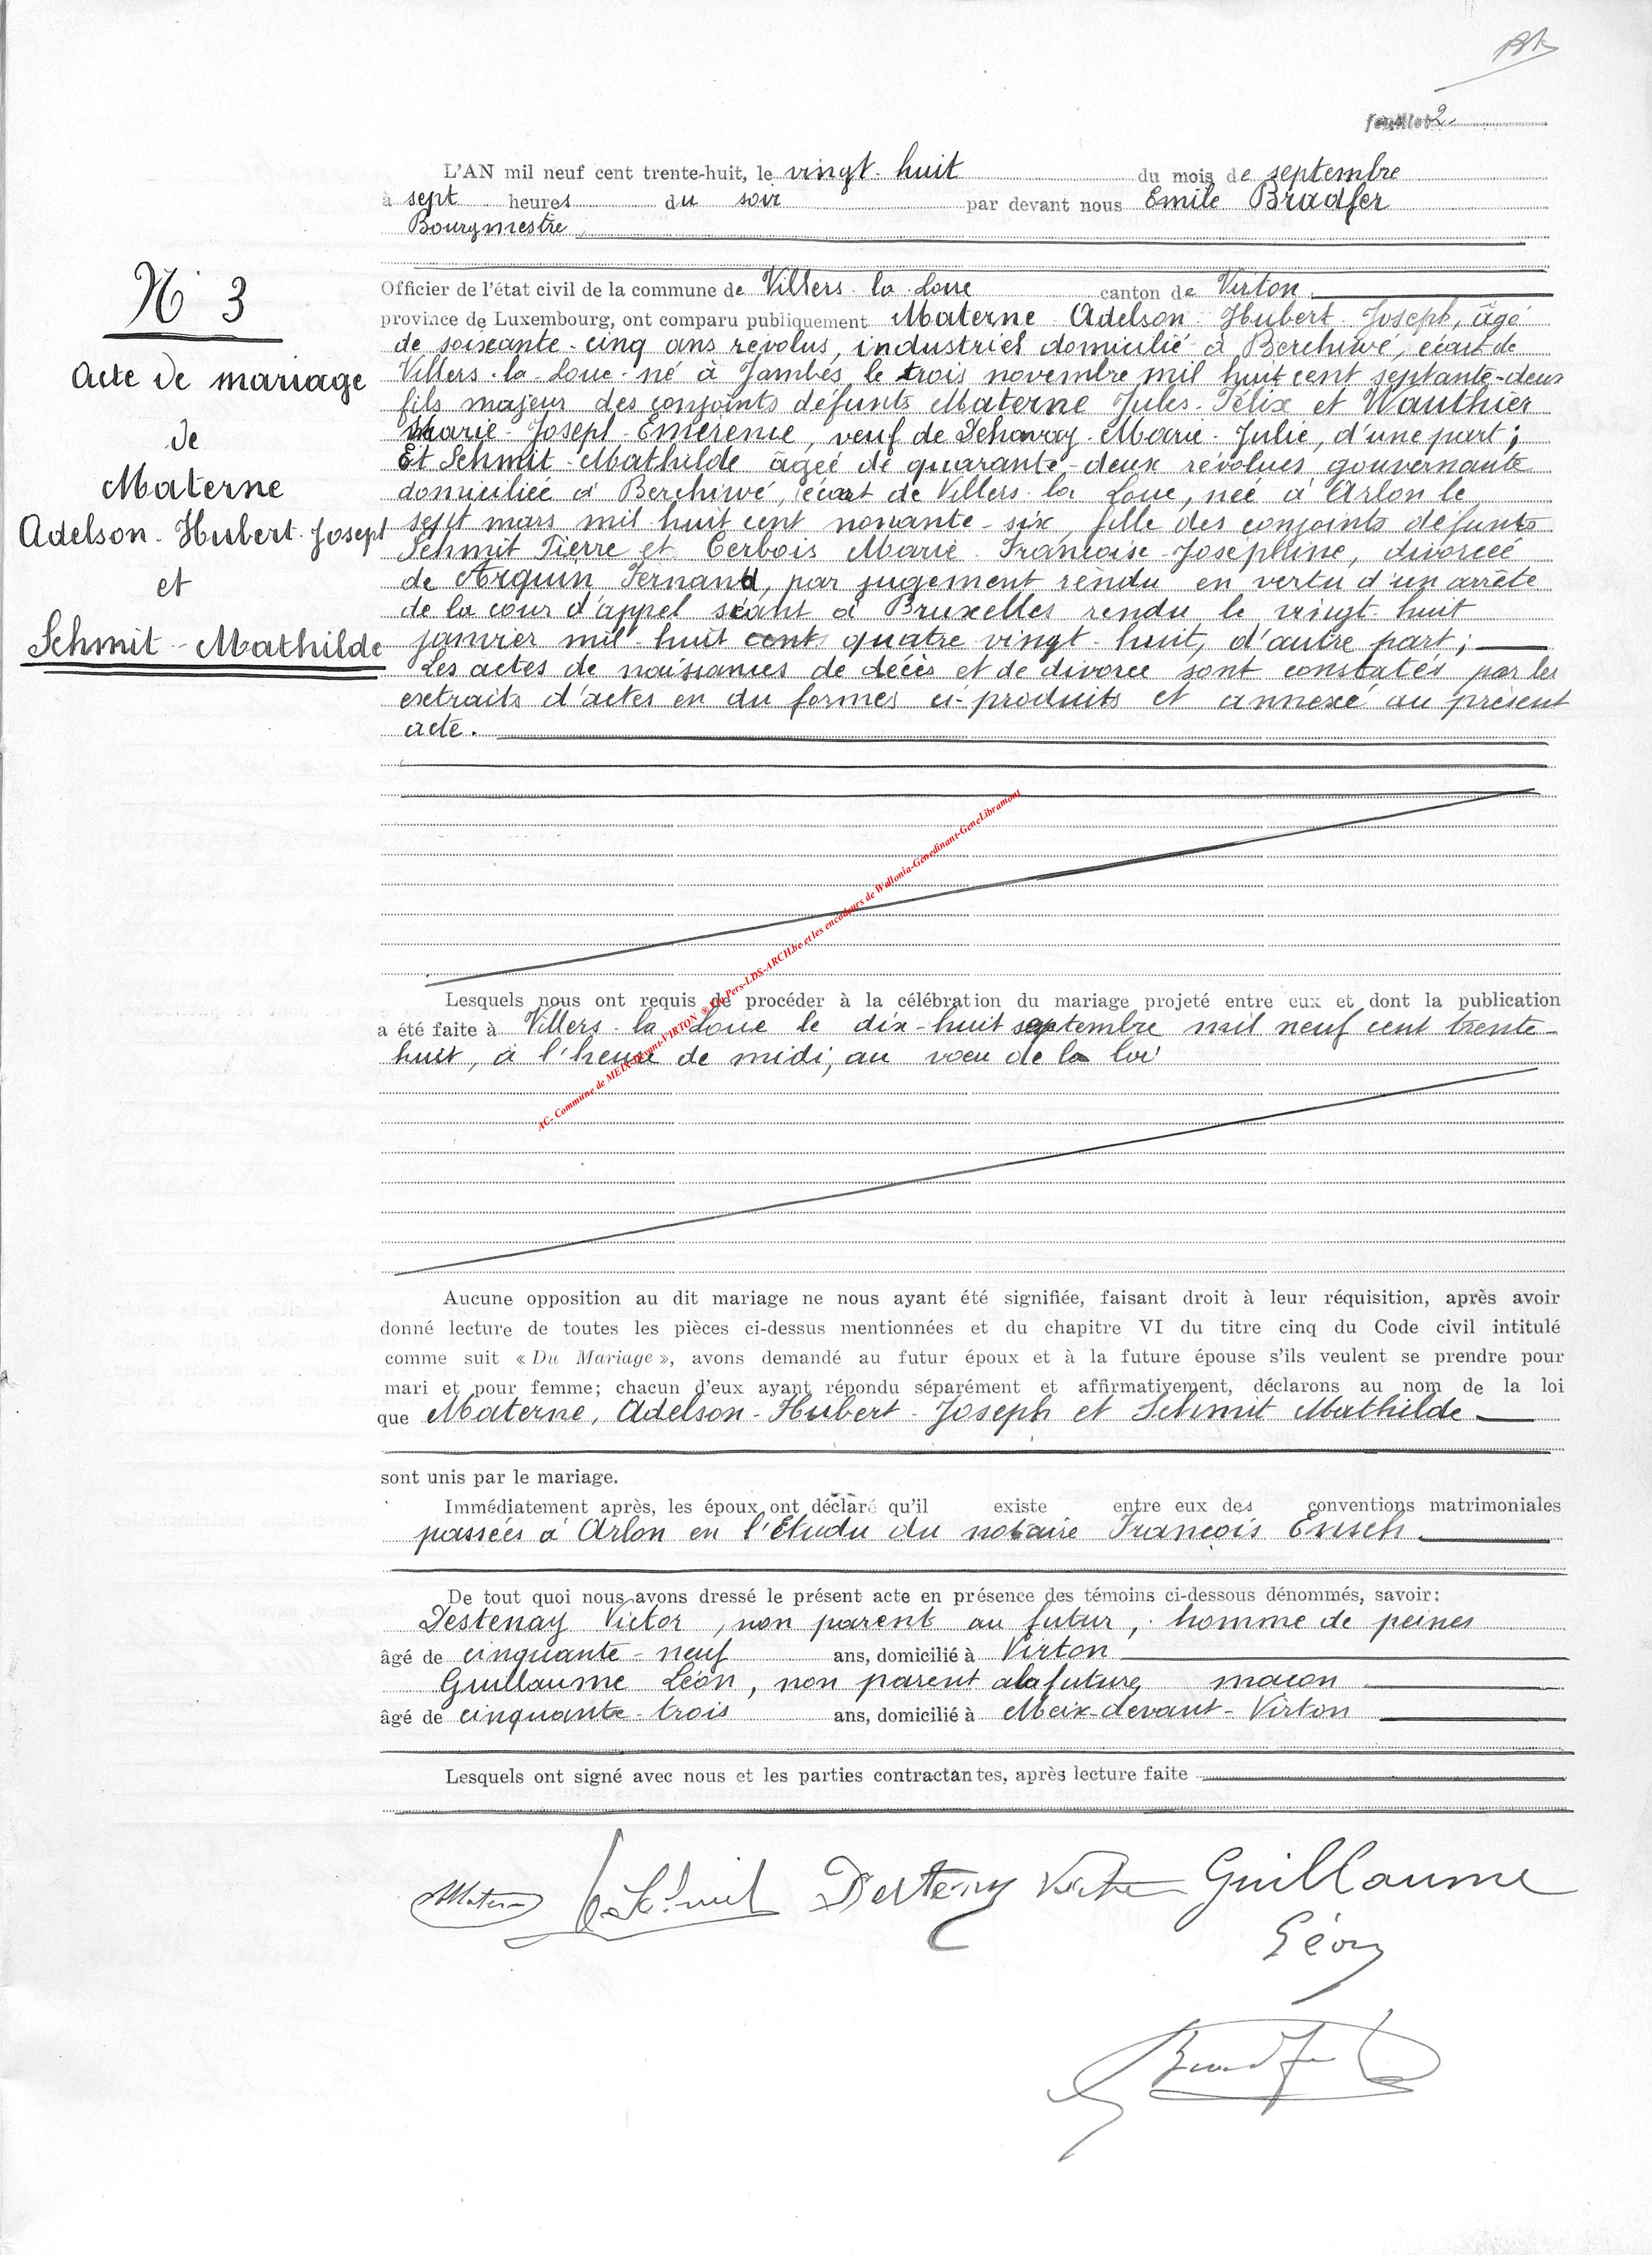 feuillet 2
L'AN mil neuf cent trente-huit, le vingt-huit du mois de septembre
à sept heures du soir par devant nous Emile Bradfer
Bourgmestre
Officier de l'état civil de la commune de Villers-la-Loue canton de Virton
province de Luxembourg, ont comparu publiquement Materne Adelson-Hubert-Joseph, âgé
de soixante-cinq ans révolus, industriel domicilié à Berchiwé, écart de
Villers-la-Loue né à Jambes le trois novembre mil huit cent septante-deux
fils majeur des conjoints défunts Materne Jules-Félix et Wauthier
Marie-Joseph-Emérence, veuf de Dehavay-Marie-Julie, d'une part;
Et Schmit-Mathilde âgée de quarante-deux révolues gouvernante
domiciliée à Berchiwé, écart de Villers-la-Loue, née à Arlon le
sept mars mil huit cent nonante-six, fille des conjoints défunts
Schmit Pierre et Cerbois Marie-Françoise-Joséphine, divorcée
de Arquin Fernand, par jugement rendu en vertu d'un arrête
de la cour d'appel séant à Bruxelles rendu le vingt-huit
janvier mil-huit cent quatre vingt-huit, d'autre part;
Les actes de naissances de décès et de divorce sont constatés par les
extraits d'actes en du formes ci-produits et annexé au présent
acte.
N° 3
Acte de mariage
de
Materne
Adelson-Hubert-Joseph
et
Schmit-Mathilde
Lesquels nous ont requis de procéder à la célébration du mariage projeté entre eux et dont la publication
a été faite à Villers-la-Loue le dix-huit septembre mil neuf cent trente-
huit, à l'heure de midi, au vœu de la loi
AC- Commune de MEIX-Devant-VIRTON ® -Pers-LDS-ARCH.be et les encodeurs de Wallonia-Genedinant-GeneLibramont
Aucune opposition au dit mariage ne nous ayant été signifiée, faisant droit à leur réquisition, après avoir
donné lecture de toutes les pièces ci-dessus mentionnées et du chapitre VI du titre cinq du Code civil intitulé
comme suit « Du Mariage », avons demandé au futur époux et à la future épouse s'ils veulent se prendre pour
mari et pour femme; chacun d'eux ayant répondu séparément et affirmativement, déclarons au nom de la loi
que Materne, Adelson-Hubert-Joseph et Schmit Mathilde
sont unis par le mariage.
Immédiatement après, les époux ont déclaré qu'il existe entre eux des conventions matrimoniales
passées à Arlon en l'Etudu du notaire François Ensch
De tout quoi nous avons dressé le présent acte en présence des témoins ci-dessous dénommés, savoir:
Destenay Victor, non parent au futur, homme de peines
âgé de cinquante-neuf ans, domicilié à Virton
Guillaume Léon, non parent a la future maçon
âgé de cinquante-trois ans, domicilié à Meix-devant-Virton
Lesquels ont signé avec nous et les parties contractantes, après lecture faite
Materne Schmit Destenay Victor Guillaume
Léon
Bradfer